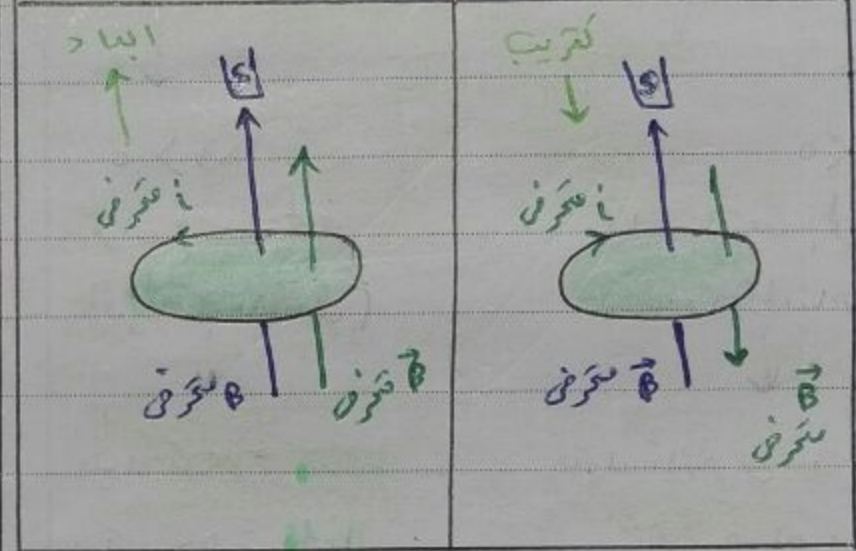 تقريب
S
i متحرض
B محرض
B
متحرض
ابعاد
S
i متحرض
B محرض
B متحرض